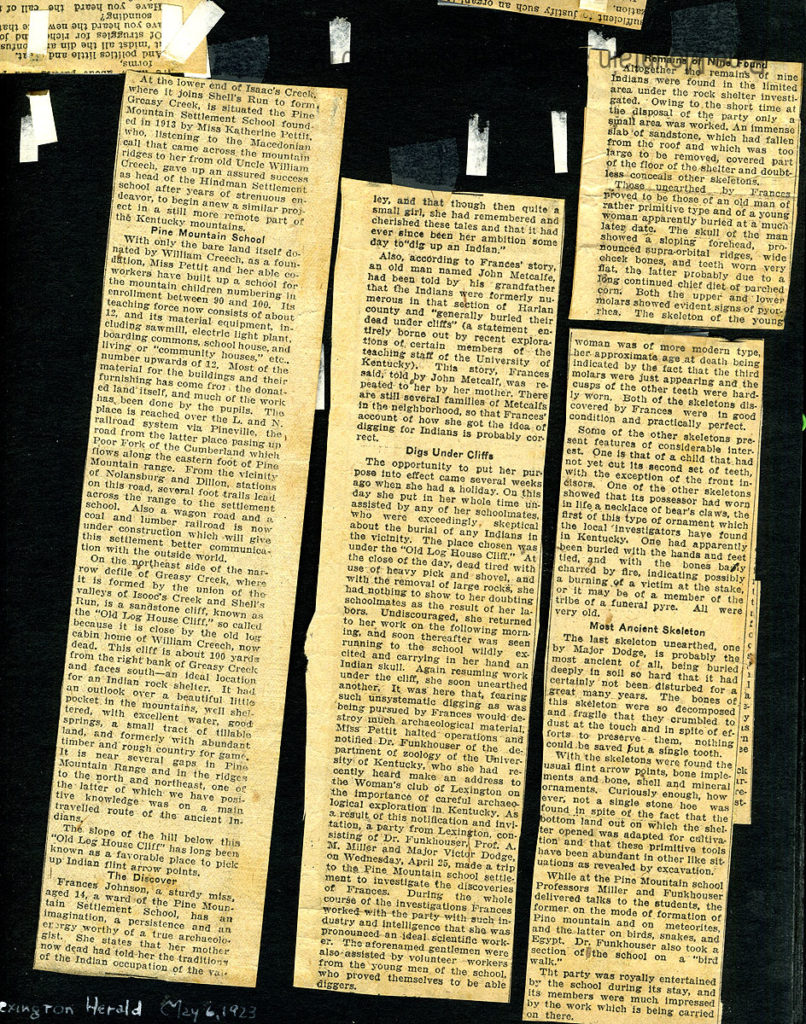 At the lower end of Isaac's Creek,
where it joins Shell's Run to form
Greasy Creek, is situated the Pine
Mountain Settlement School found-
ed in 1913 by Miss Katherine Pettit,
who, listening to the Macedonian
call that came across the mountain
ridges to her from old Uncle William
Creech, gave up an assured success
as head of the Hindman Settlement
school after years of strenuous en-
deavor, to begin anew a similar proj-
ect in a still more remote part of
the Kentucky mountains.
Pine Mountain School
With only the bare land itself do-
nated by William Creech, as a foun-
dation, Miss Pettit and her able co-
workers have built up a school for
the mountain children numbering in
enrollment between 90 and 100. Its
teaching force now consists of about
12, and its material equipment, in-
cluding sawmill, electric light plant,
boarding commons, school house, and
living or "community houses," etc.,
number upwards of 12. Most of the
material for the buildings and their
furnishing has come from the donat-
ed land itself, and much of the work
has been done by the pupils. The
place is reached over the L. and N.
railroad system via Pineville, the
road from the latter place pasing up
Poor Fork of the Cumberland which
flows along the eastern foot of Pine
Mountain range. From the vicinity
of Nolansburg and Dillon, stations
on this road, several foot trails lead
across the range to the settlement
school. Also a wagon road and a
coal and lumber railroad is now
under construction which will give
this settlement better communica-
tion with the outside world.
On the northeast side of the nar-
row defile of Greasy Creek, where
it is formed by the union of the
valleys of Isooc's Creek and Shell's
Run, is a sandstone cliff, known as
the "Old Log House Cliff," so called
because it is close by the old log
cabin home of William Creech, now
dead. This cliff is about 100 yards
from the right bank of Greasy Creek
and faces south—an ideal location
for an Indian rock shelter. It had
an outlook over a beautiful little
pocket in the mountains, well shel-
tered, with excellent water, good
springs, a small tract of tillable
land, and formerly with abundant
timber and rough country for game.
It is near several gaps in Pine
Mountain Range and in the ridges
to the north and northeast, one of
the latter of which we have posi-
tive knowledge was on a main
travelled route of the ancient In-
dians.
The slope of the hill below this
"Old Log House Cliff" has long been
known as a favorable place to pick
up Indian flint arrow points.
The Discover
Frances Johnson, a sturdy miss,
aged 14, a ward of the Pine Moun-
tain Settlement School, has an
imagination, a persistence and an
energy worthy of a true archaeolo-
gist. She states that her mother
now dead had told her the traditions
of the Indian occupation of the val-
ley, and that though then quite a
small girl, she had remembered and
cherished these tales and that it had
ever since been her ambition some
day to "dig up an Indian."
Also, according to Frances' story,
an old man named John Metcalfe,
had been told by his grandfather
that the Indians were formerly nu-
merous in that section of Harlan
county and "generally buried their
dead under cliffs" (a statement en-
tirely borne out by recent explora-
tions of certain members of the
teaching staff of the University of
Kentucky). This story, Frances
said, told by John Metcalf, was re-
peated to her by her mother. There
are still several families of Metcalfs
in the neighborhood, so that Frances'
account of how she got the idea of
digging for Indians is probably cor-
rect.
Digs Under Cliffs
The opportunity to put her pur-
pose into effect came several weeks
ago when she had a holiday. On this
day she put in her whole time un-
assisted by any of her schoolmates,
who were exceedingly skeptical
about the burial of any Indians in
the vicinity. The place chosen was
under the "Old Log House Cliff." At
the close of the day, dead tired with
use of heavy pick and shovel, and
with the removal of large rocks, she
had nothing to show to her doubting
schoolmates as the result of her la-
bors. Undiscouraged, she returned
to her work on the following morn-
ing, and soon thereafter was seen
running to the school wildly ex-
cited and carrying in her hand an
Indian skull. Again resuming work
under the cliff, she soon unearthed
another. It was here that, fearing
such unsystematic digging as was
being pursued by Frances would de-
stroy much archaeological material,
Miss Pettit halted operations and
notified Dr. Funkhouser of the de-
partment of zoology of the Univer-
sity of Kentucky, who she had re-
cently heard make an address to
the Woman's club of Lexington on
the importance of careful archaeo-
logical exploration in Kentucky. As
a result of this notification and invi-
tation, a party from Lexington, con-
sisting of Dr. Funkhouser, Prof. A.
M. Miller and Major Victor Dodge,
on Wednesday, April 25, made a trip
to the Pine Mountain school settle-
ment to investigate the discoveries
of Frances. During the whole
course of the investigations Frances
worked with the party with such in-
dustry and intelligence that she was
pronounced an ideal scientific work-
er. The aforenamed gentlemen were
also assisted by volunteer workers
from the young men of the school,
who proved themselves to be able
diggers.
Remains of Nine Found
Altogether the remains of nine
Indians were found in the limited
area under the rock shelter investi-
gated. Owing to the short time at
the disposal of the party only a
small area was worked. An immense
slab of sandstone, which had fallen
from the roof and which was too
large to be removed, covered part
of the floor of the shelter and doubt-
less conceals other skeletons.
Those unearthed by Frances
proved to be those of an old man of
rather primitive type and of a young
woman apparently buried at a much
later date. The skull of the man
showed a sloping forehead, pro-
nounced supra-orbital ridges, wide
cheek bones, and teeth worn very
flat, the latter probably due to a
long continued chief diet of parched
corn. Both the upper and lower
molars showed evident signs of pyor-
rhea. The skeleton of the young
woman was of more modern type,
her approximate age at death being
indicated by the fact that the third
molars were just appearing and the
cusps of the other teeth were hard-
ly worn. Both of the skeletons dis-
covered by Frances were in good
condition and practically perfect.
Some of the other skeletons pre-
sent features of considerable inter-
est. One is that of a child that had
not yet cut its second set of teeth,
with the exception of the front in-
cisors. One of the other skeletons
showed that its possessor had worn
in life a necklace of bear's claws, the
first of this type of ornament which
the local investigators have found
in Kentucky. One had apparently
been buried with the hands and feet
tied, and with the bones badly
charred by fire, indicating possibly
a burning of a victim at the stake,
or it may be of a member of the
tribe of a funeral pyre. All were
very old.
Most Ancient Skeleton
The last skeleton unearthed, one
by Major Dodge, is probably the
most ancient of all, being buried
deeply in soil so hard that it had
certainly not been disturbed for a
great many years. The bones of
this skeleton were so decomposed
and fragile that they crumbled to
dust at the touch and in spite of ef-
forts to preserve them, nothing
could be saved but a single tooth.
With the skeletons were found the
usual flint arrow points, bone imple-
ments and bone, shell and mineral
ornaments. Curiously enough, how
ever, not a single stone hoe was
found in spite of the fact that the
bottom land out on which the shel-
ter opened was adapted for cultiva-
tion and that these primitive tools
have been abundant in other like sit-
uations as revealed by excavation.
While at the Pine Mountain school
Professors Miller and Funkhouser
delivered talks to the students, the
former on the mode of formation of
Pine mountain and on meteorites,
and the latter on birds, snakes, and
Egypt. Dr. Funkhouser also took a
section of the school on a "bird
walk."
Tht party was royally entertained
by the school during its stay, and
its members were much impressed
by the work which is being carried
on there.
exington Herald May 6, 1923